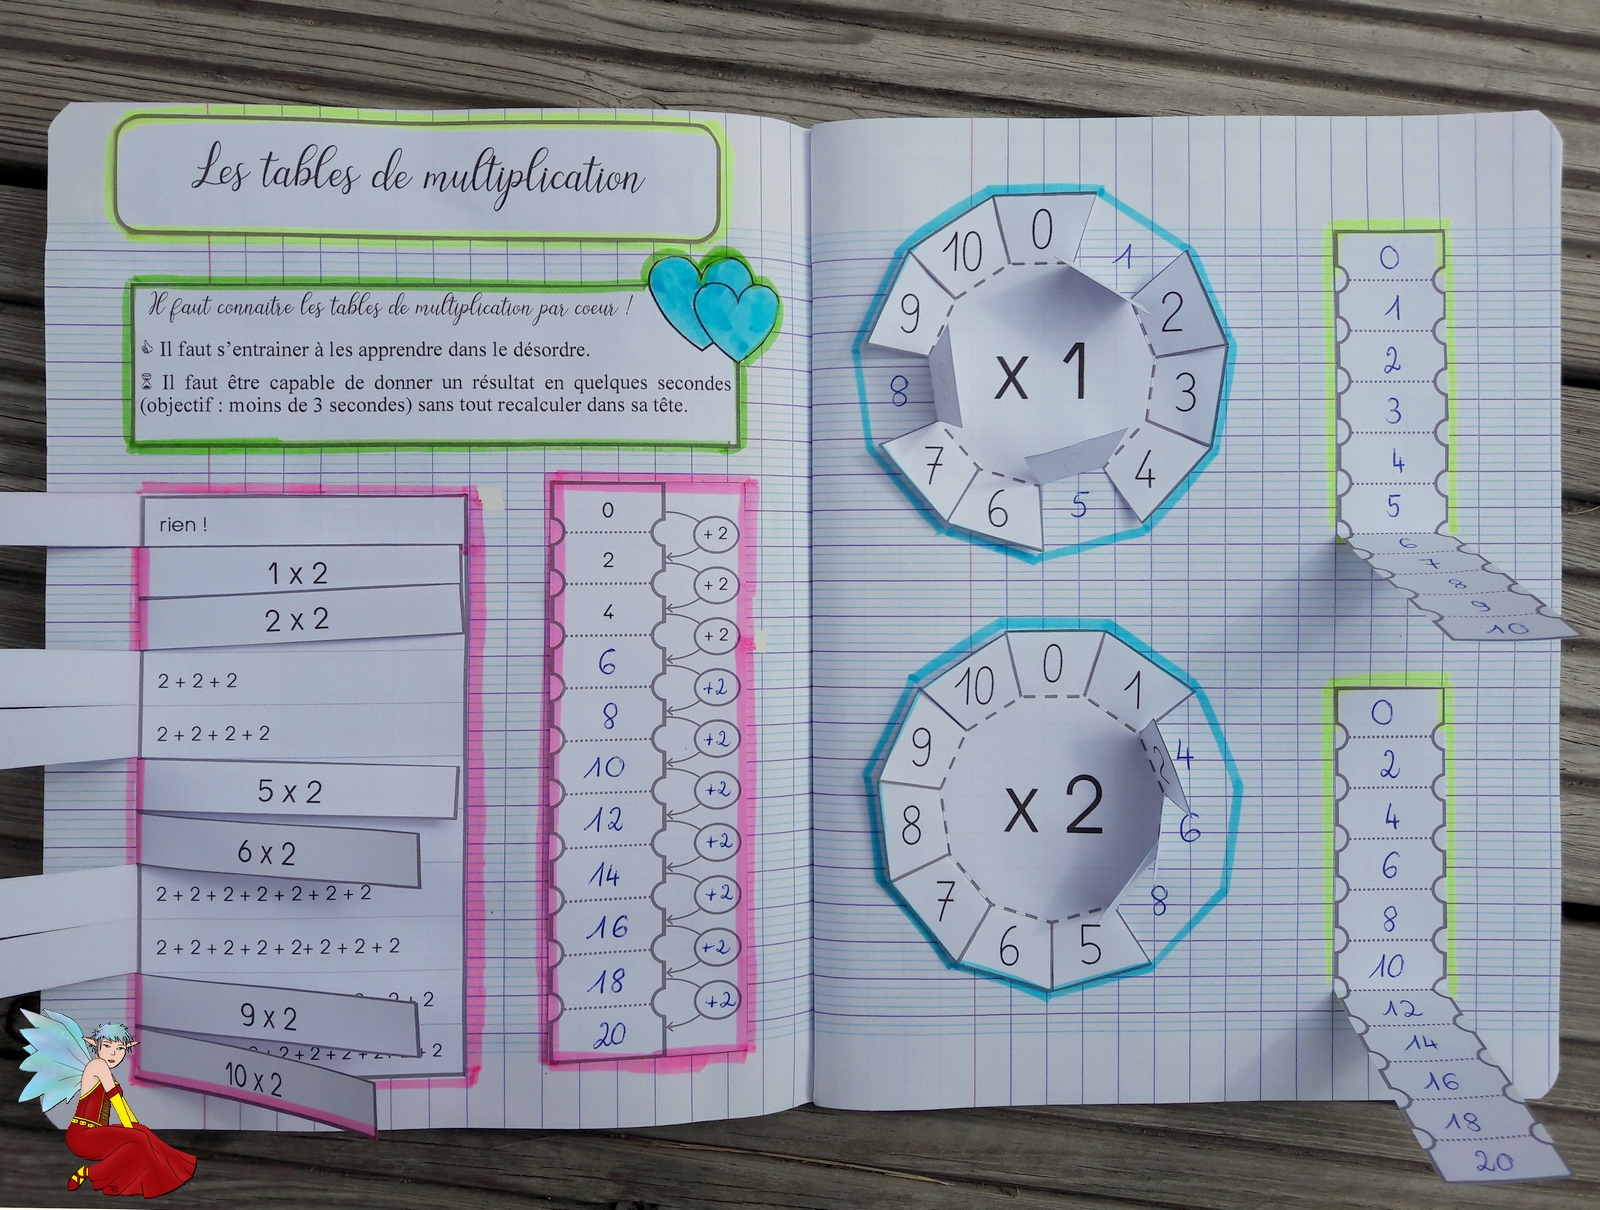 Les tables de multiplication
Il faut connaître les tables de multiplication par coeur !
Il faut s'entrainer à les apprendre dans le désordre.
Il faut être capable de donner un résultat en quelques secondes
(objectif : moins de 3 secondes) sans tout recalculer dans sa tête.
rien !
1 x 2
2 x 2
2 + 2 + 2
2 + 2 + 2 + 2
5 x 2
6 x 2
2 + 2 + 2 + 2 + 2 + 2 + 2
2 + 2 + 2 + 2 + 2+ 2 + 2 + 2
9 x 2
10 x 2
0
+ 2
2
+ 2
4
+ 2
6
+2
8
+2
10
+2
12
+2
14
+2
16
+2
18
+2
20
0
1
2
3
4
5
6
7
8
9
10
x 1
0
1
2
3
4
5
6
7
8
9
10
0
1
2
4
6
8
5
6
7
8
9
10
x 2
0
2
4
6
8
10
12
14
16
18
20